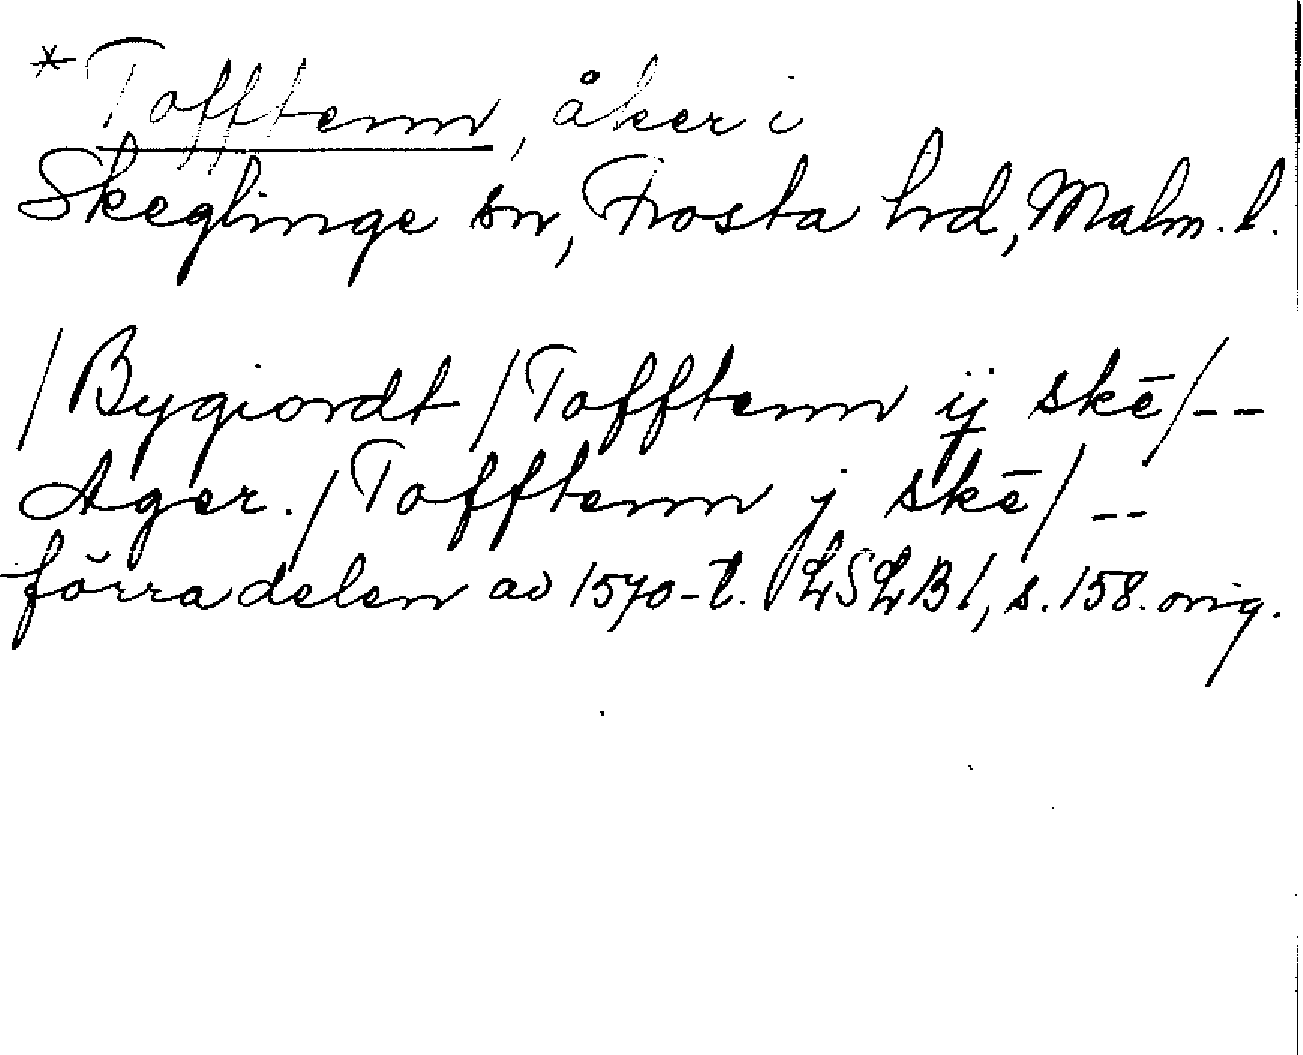 *Tofftenn, åker i
Skeglinge sn, Frosta hrd, Malm. l.
/Bygiordt/Tofftenn ij skē/--
Ager./Tofftenn j skē/--
förra delen av 1570-t. LSLB1, s. 158. orig.